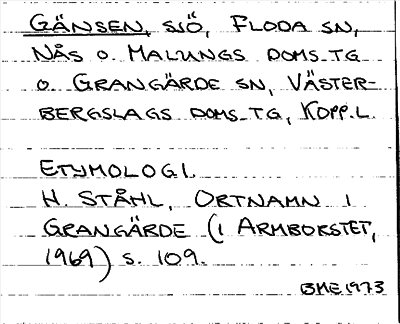 GÄNSEN, SJÖ, FLODA SN,
NÅS O. MALUNGS DOMS.TG
O. GRANGÄRDE SN, VÄSTER-
BERGSLAGS DOMS.TG, KOPP.L.
ETYMOLOGI.
H. STÅHL, ORTNAMN I
GRANGÄRDE (I ARMBORSTET,
1969) S. 109.
BME 1973